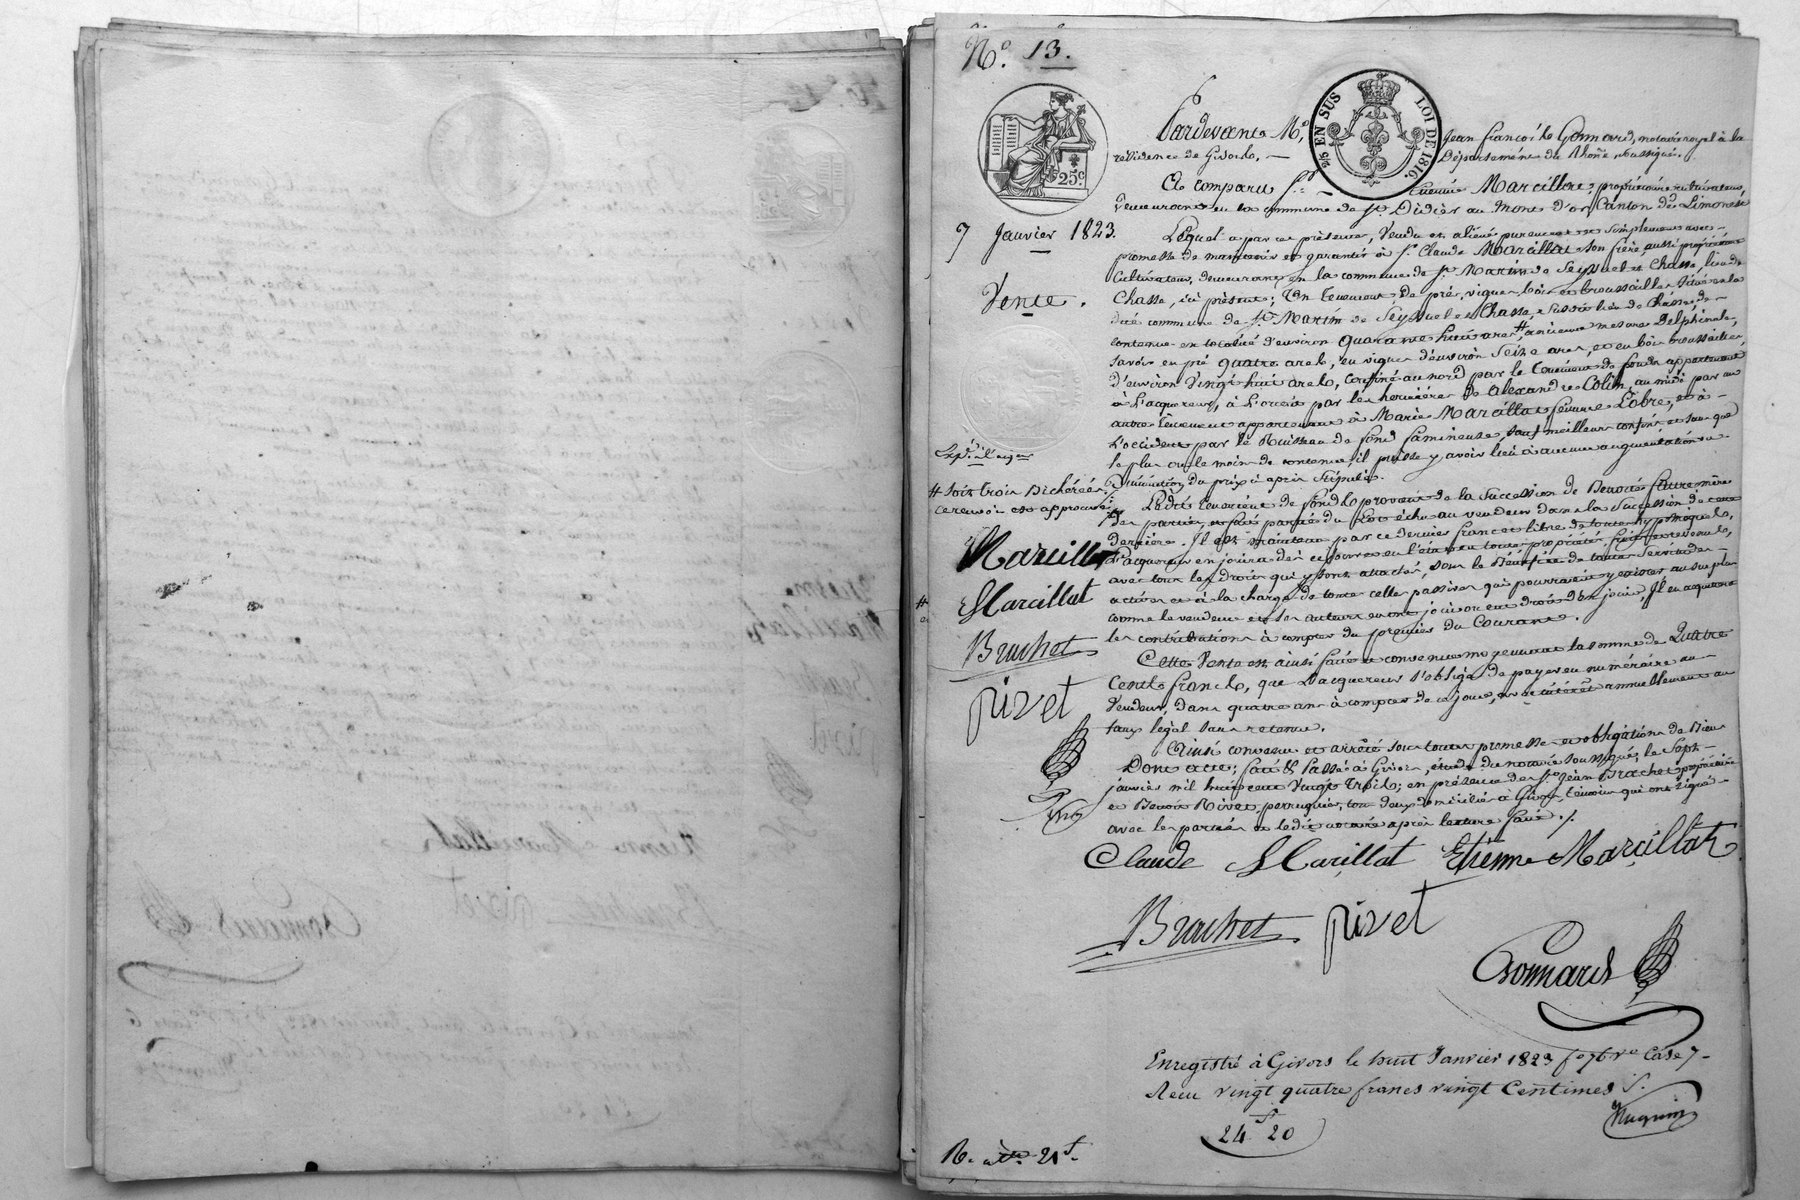 N.° 13.
25 EN SUS LOI DE 1816.
25 c.
Pardevant M.e Jean François Gonnard, notaire royal à la
résidence de Givors, Département du Rhône soussigné.
A comparu S.r Etienne Marcillat, propriétaire cultivateur,
demeurant en la commune de S.t Didier au Mont d'or Canton de Limonest
7 Janvier 1823.
Vente.
Lequel a par ces présentes, Vendu et aliéné purement et simplement avec
promesse de maintenir et garantir à S.r Claude Marcillat son frère, aussi propriétaire
Cultivateur, demeurant en la commune de S.t Martin de Seyssuel et Chasse, lieu de
Chasse, ici présent; Un tenement de pré, vigne, bois et broussailles situé en la
dite commune de S.t Martin de Seyssuel et Chasse, susdit lieu de Chasse, de
contenue en totalité d'environ quarante huit ares, # ancienne mesure Delphinale,
savoir en pré quatre ares, en vigne d'environ Seize ares, et en bois broussailles,
d'environ Vingt huit ares, confiné au nord par le tenement de fonds appartenant
à l'acquereur, à l'orient par les héritiers de Alexandre Colin, au midi par un
autre tenement appartenant à Marie Marcillat femme Lobre, et à
l'occident par le Ruisseau de fond famineuse, sauf meilleurs confins et sans que
le plus ou le moins de contenue, il puisse y avoir lieu à aucune augmentation ou
Diminution du prix ci après Stipulé.
Exp.é à l'acqr
# soit trois Bicherées,
ce renvoi est approuvé
Ledit tenement de fonds provient de la Succession de Benoite faure mère
des parties, et fait partie du Lot échu au vendeur dans la Succession de cette
dernière. Il est maintenu par ce dernier franc et libre de toutes hypothèques,
L'acquereur en jouira dès ce jour en l'état en toute propriété, fruits et revenus,
avec tous les droits qui y sont attachés, sous le Bénéfice de toutes Servitudes
actives et à la charge de toutes celles passives qui pourraient y exister au surplus
comme le vendeur et ses auteurs en ont joui ou eu droit d'en jouir, Il en acquittera
les contributions à compter du premier du Courant.
Marcillat
Marcillat
Brachet
pivet
Cette Vente est ainsi faite et convenue moyennant la somme de Quatre
Cents francs, que L'acquereur s'oblige de payer en numéraire au
Vendeur, dans quatre ans à compter de ce jour, avec intérêt annuellement au
taux légal sans retenue.
Ainsi convenu et arrêté sous toutes promesses et obligations de Biens
Dont acte; fait & Passé à Givors, étude du notaire soussigné, le Sept
janvier mil huit cent Vingt Trois; en présence de S.rs Jean Brachet propriétaire
et Benoit Rivet, perruquier, tous deux domiciliés à Givors, témoins qui ont signé
avec les parties et ledit notaire après lecture faite ./.
Claude Marcillat Etienne Marcillat
Brachet pivet
Gonnard
Enregistré à Givors le huit Janvier 1823 f° 76 v° Case 7
Recu vingt quatre francs vingt Centimes
24 f 20
Huguin
R. 21 f.